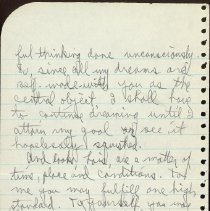 ful thinking done unconsciously.
so, since all my dreams are
self-made with you as the
central object, I shall have
to continue dreaming until I
attain my goal or see it
hopelessly squashed.
And looks have are a matter of
time, place and conditions. To
me you may fulfill one high
standard. To yourself you may